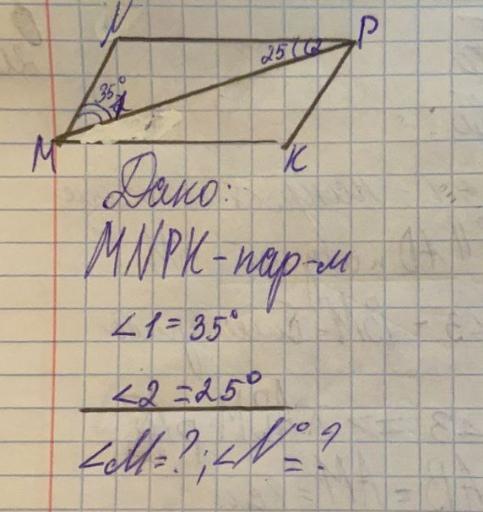 N
P
25° 2
35°
1
M
K
Дано:
MNPK-пар-м
∠1=35°
∠2=25°
∠M=?; ∠N°=?